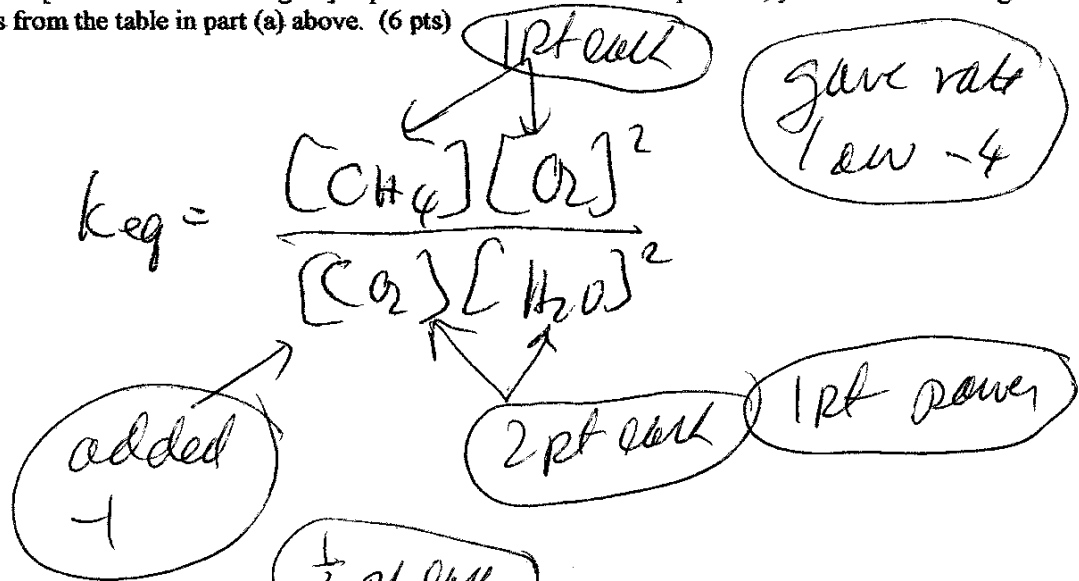 s from the table in part (a) above. (6 pts)
1pt each
gave rate
law -4
Keq = [CH4][O2]²
[CO2][H2O]²
added
-1
2pt each
1pt power